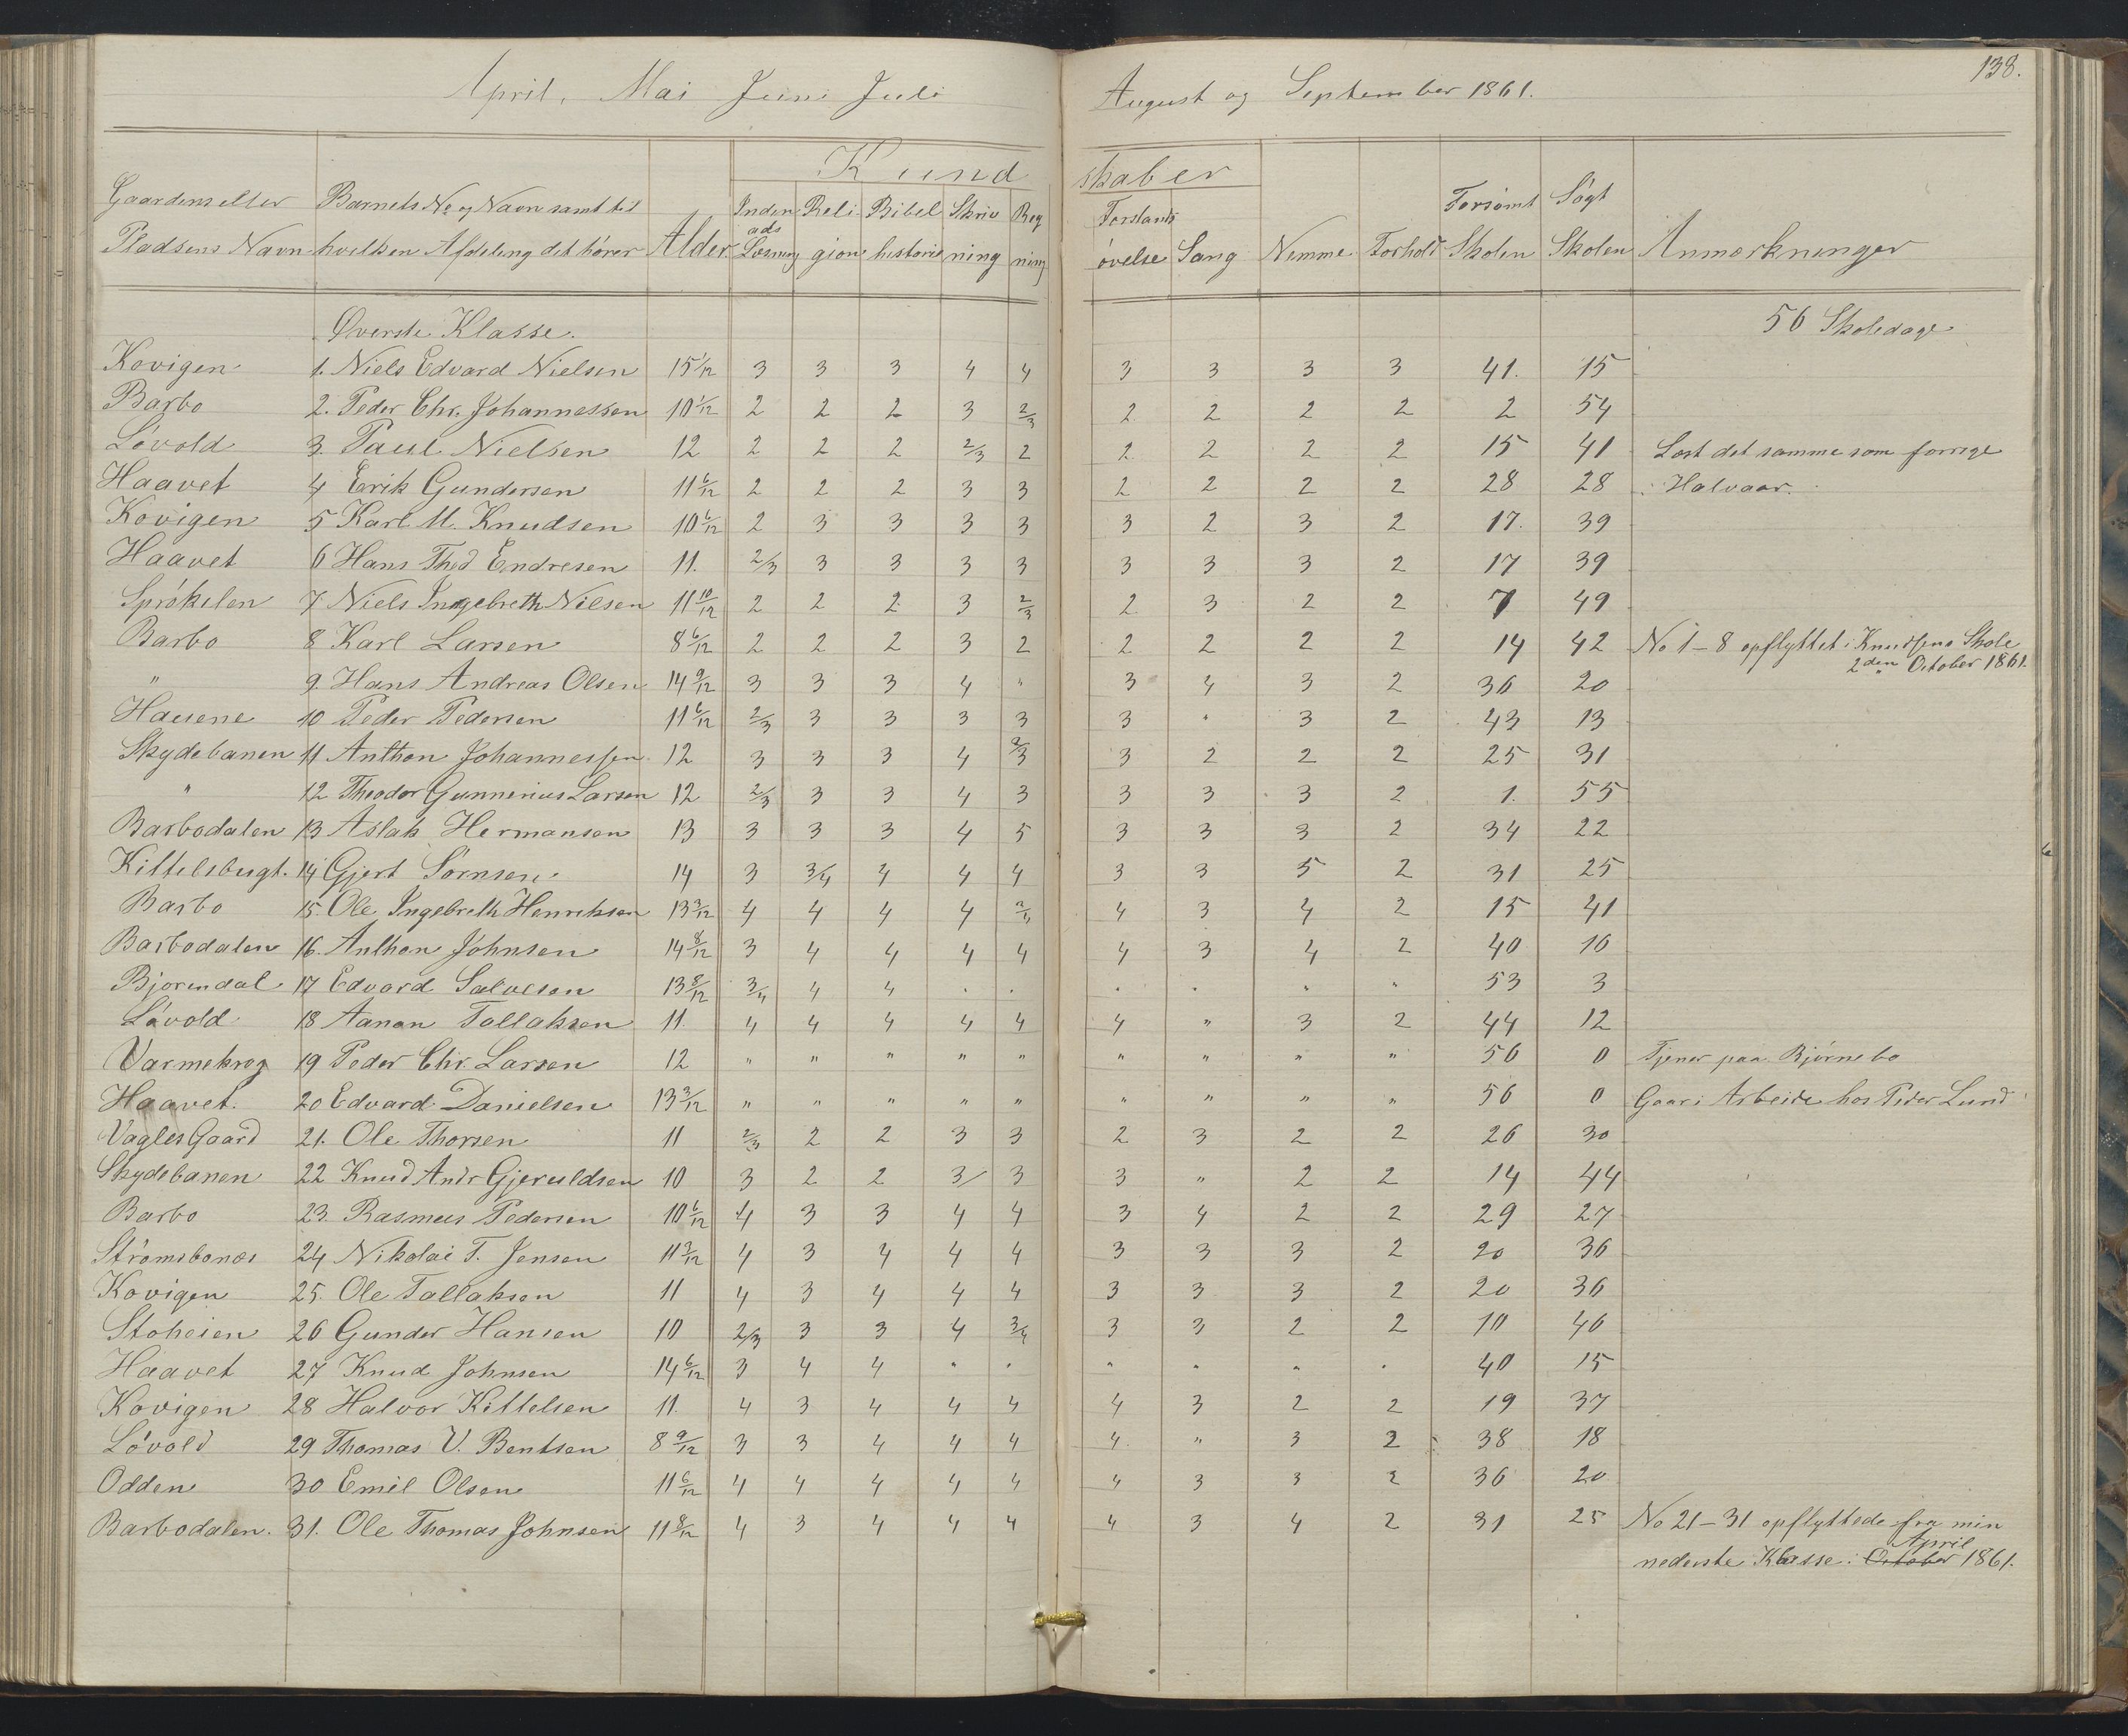 138.
April, Mai Juni Juli August og September 1861.
Kundskaber
Gaardens eller Pladsens Navn | Barnets No og Navn samt til hvilken Afdeling det hører | Alder | Indenads Læsning | Religion | Bibelhistorie | Skrivning | Regning | Forstandsøvelse | Sang | Nemme | Forhold | Forsømt Skolen | Søgt Skolen | Anmærkninger
Øverste Klasse. 56 Skoledage
Kovigen 1. Niels Edvard Nielsen 15 1/12 3 3 3 4 4 3 3 3 3 41. 15
Barbo 2. Peder Chr. Johannessen 10 1/12 2 2 2 3 2/3 2 2 2 2 2 54
Lóvold 3. Paul Nielsen 12 2 2 2 2/3 2 2 2 2 2 15 41 Læst det samme som forrige
Haavet 4 Erik Gundersen 11 6/12 2 2 2 3 3 2 2 2 2 28 28 Halvaar.
Kovigen 5 Karl M. Knudsen 10 6/12 2 3 3 3 3 3 2 3 2 17. 39
Haavet 6 Hans Thed Endresen 11. 2/3 3 3 3 3 3 3 3 2 17 39
Sprókelen 7 Niels Ingebreth Nilsen 11 10/12 2 2 2 3 2/3 2 3 2 2 7 49
Barbo 8 Karl Larsen 8 6/12 2 2 2 3 2 2 2 2 2 14 42 No 1-8 opflyttet i Knudsens Skole
2den October 1861.
" 9. Hans Andreas Olsen 14 9/12 3 3 3 4 " 3 4 3 2 36 20
Hausene 10 Peder Pedersen 11 6/12 2/3 3 3 3 3 3 " 3 2 43 13
Skydebanen 11 Anthon Johannessen 12 3 3 3 4 2/3 3 2 2 2 25 31
" 12 Theodor Gunnerius Larsen 12 2/3 3 3 4 3 3 3 3 2 1. 55
Barbodalen 13 Aslak Hermansen 13 3 3 3 4 5 3 3 3 2 34 22
Kittelsbugt. 14 Gjert Sörnsen 14 3 3/4 4 4 4 3 3 5 2 31 25
Barbo 15. Ole Ingebreth Henriksen 13 3/12 4 4 4 4 4 3 4 2 15 41
Barbodalen 16. Anthon Johnsen 14 8/12 3 4 4 4 4 4 3 4 2 40 16
Bjorendal 17 Edvard Salvesen 13 8/12 3/4 4 4 . . . . " " 53 3
Lóvold 18 Aanon Tallaksen 11. 4 4 4 4 4 4 " 3 2 44 12
Varmekrog 19 Peder Chr. Larsen 12 " " " " " " " " " 56 0 Tjener paa Bjørnebo
Haavet. 20 Edvard Danielsen 13 3/12 " " " " " " " " " 56 0 Gaar i Arbeide hos Peder Lund
Vagles Gaard 21. Ole Thorsen 11 2/3 2 2 3 3 2 3 2 2 26 30
Skydebanen 22 Knud Andr Gjeruldsen 10 3 2 2 3/ 3 3 " 2 2 14 44
Barbo 23. Rasmus Pedersen 10 6/12 4 3 3 4 4 3 4 2 2 29 27
Strömsbonæs 24 Nikolai T. Jensen 11 3/12 4 3 4 4 4 3 3 3 2 20 36
Kovigen 25. Ole Tallaksen 11 4 3 4 4 4 3 3 3 2 20 36
Stoheien 26 Gunder Hansen 10 2/3 3 3 4 3/4 3 3 2 2 10 46
Haavet 27 Knud Johnsen 14 6/12 3 4 4 " . " " " . 40 15
Kovigen 28 Halvor Kittelsen 11. 4 3 4 4 4 4 3 2 2 19 37
Lóvold 29 Thomas V. Bentsen 8 9/12 3 3 4 4 4 4 " 3 2 38 18
Odden 30 Emil Olsen 11 6/12 4 4 4 4 4 4 3 3 2 36 20
Barbodalen. 31. Ole Thomas Johnsen 11 8/12 4 3 4 4 4 4 3 4 2 31 25 No 21-31 opflyttede fra min
April
nederste Klasse i October 1861.